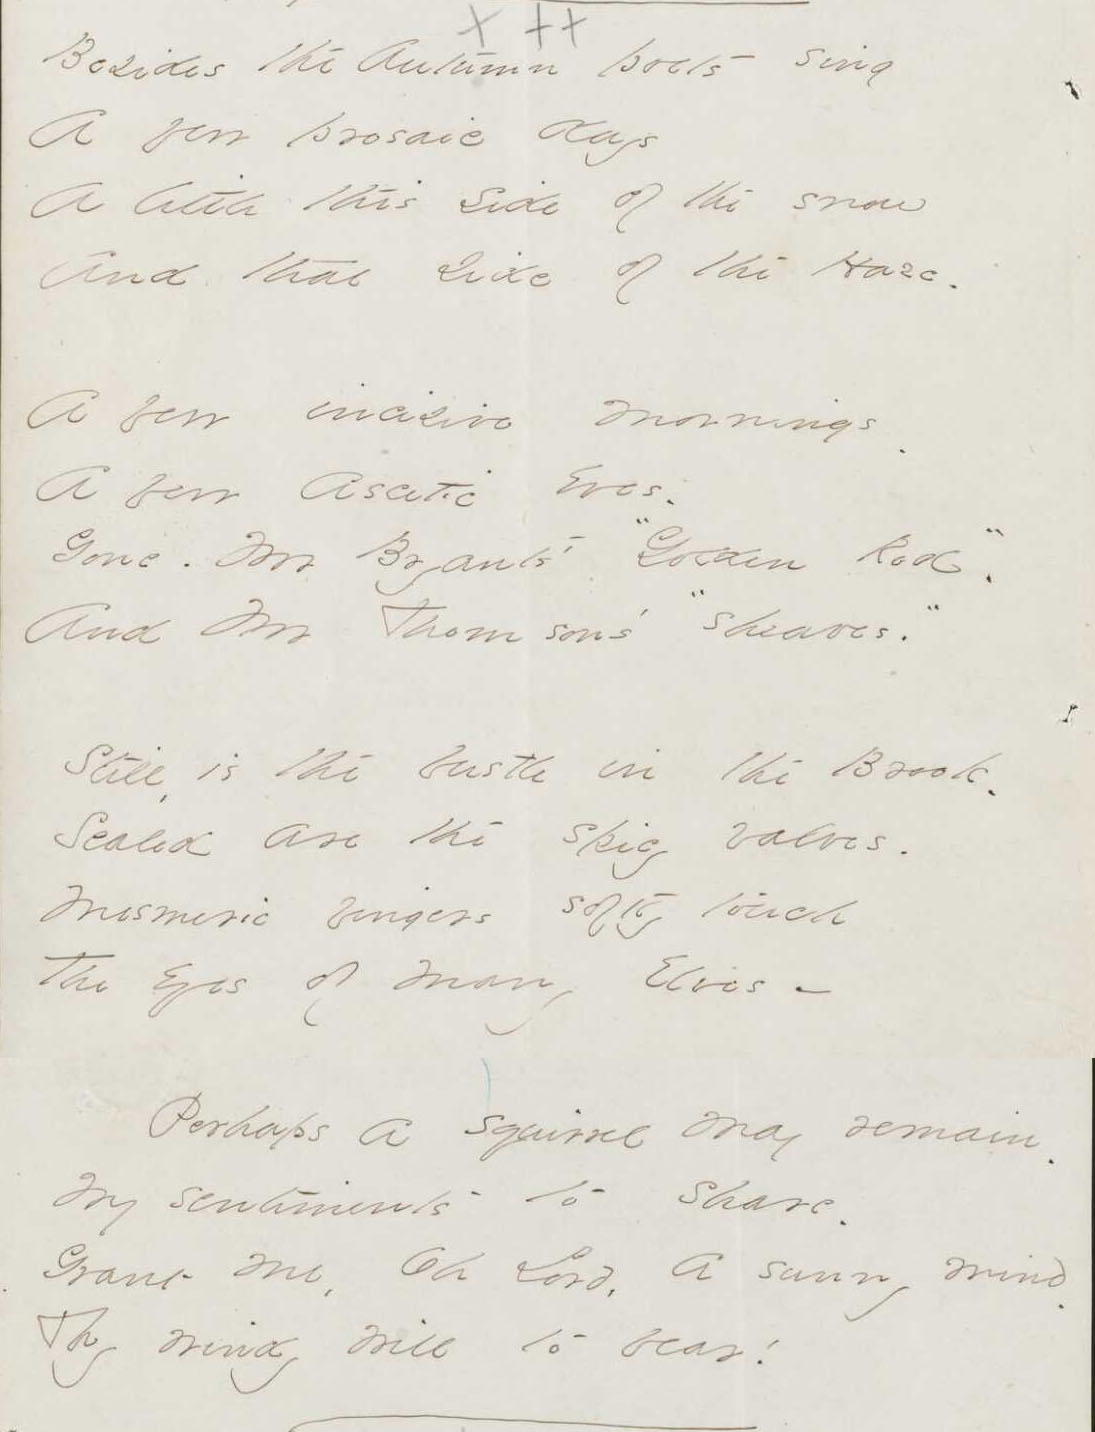 x ++
Besides the Autumn poets sing
A few prosaic days
A little this side of the snow
And that side of the Haze.
A few incisive mornings.
A few Ascetic Eves.
Gone. Mr Bryant's "Golden Rod".
And Mr Thomson's "sheaves."
Still, is the bustle in the Brook.
Sealed are the spicy valves.
Mesmeric fingers softly touch
The Eyes of many Elves -
Perhaps a squirrel may remain.
My sentiments to share.
Grant me, Oh Lord, a sunny mind.
Thy windy will to bear!